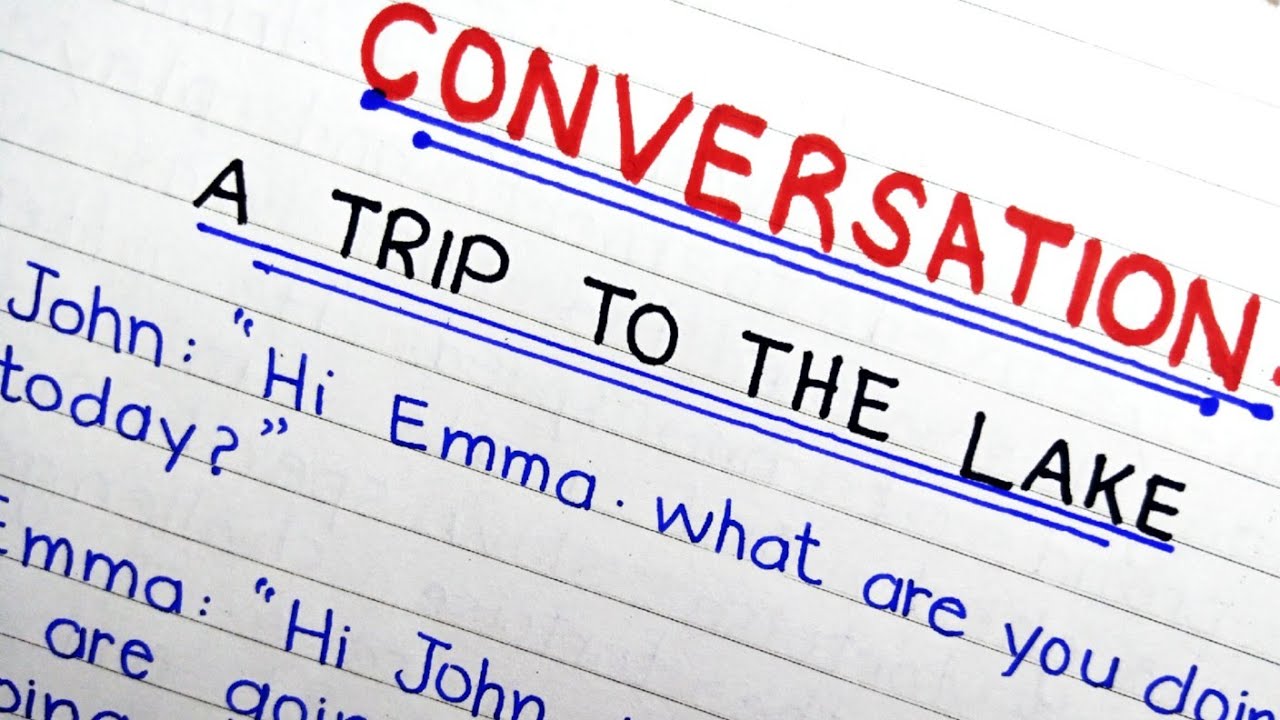 CONVERSATION.
A TRIP TO THE LAKE
John: "Hi Emma. what are you
today?"
Emma: "Hi John
are